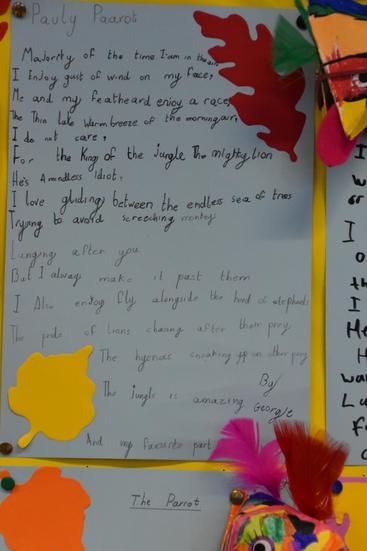 Pauly Paarot
Majority of the time I am in the air,
I Enjoy gust of wind on my face,
Me and my featheard enjoy a race,
The Thin Lake Warm breeze of the morning air,
I do not care,
For the King of the jungle The mighty lion
He's A mindless Idiot,
I love gliding between the endless sea of trees
Trying to avoid screeching monkey
Lunging after you
But I always make it past them
I Also enjoy fly alongside the herd of elephants
The pride of Lions chasing after their prey
The hyenas sneaking up on other prey
The jungle is amazing
By
George
And my favourite part
The Parrot
I
w
or
I
o
th
I
He
H
wa
Lu
f